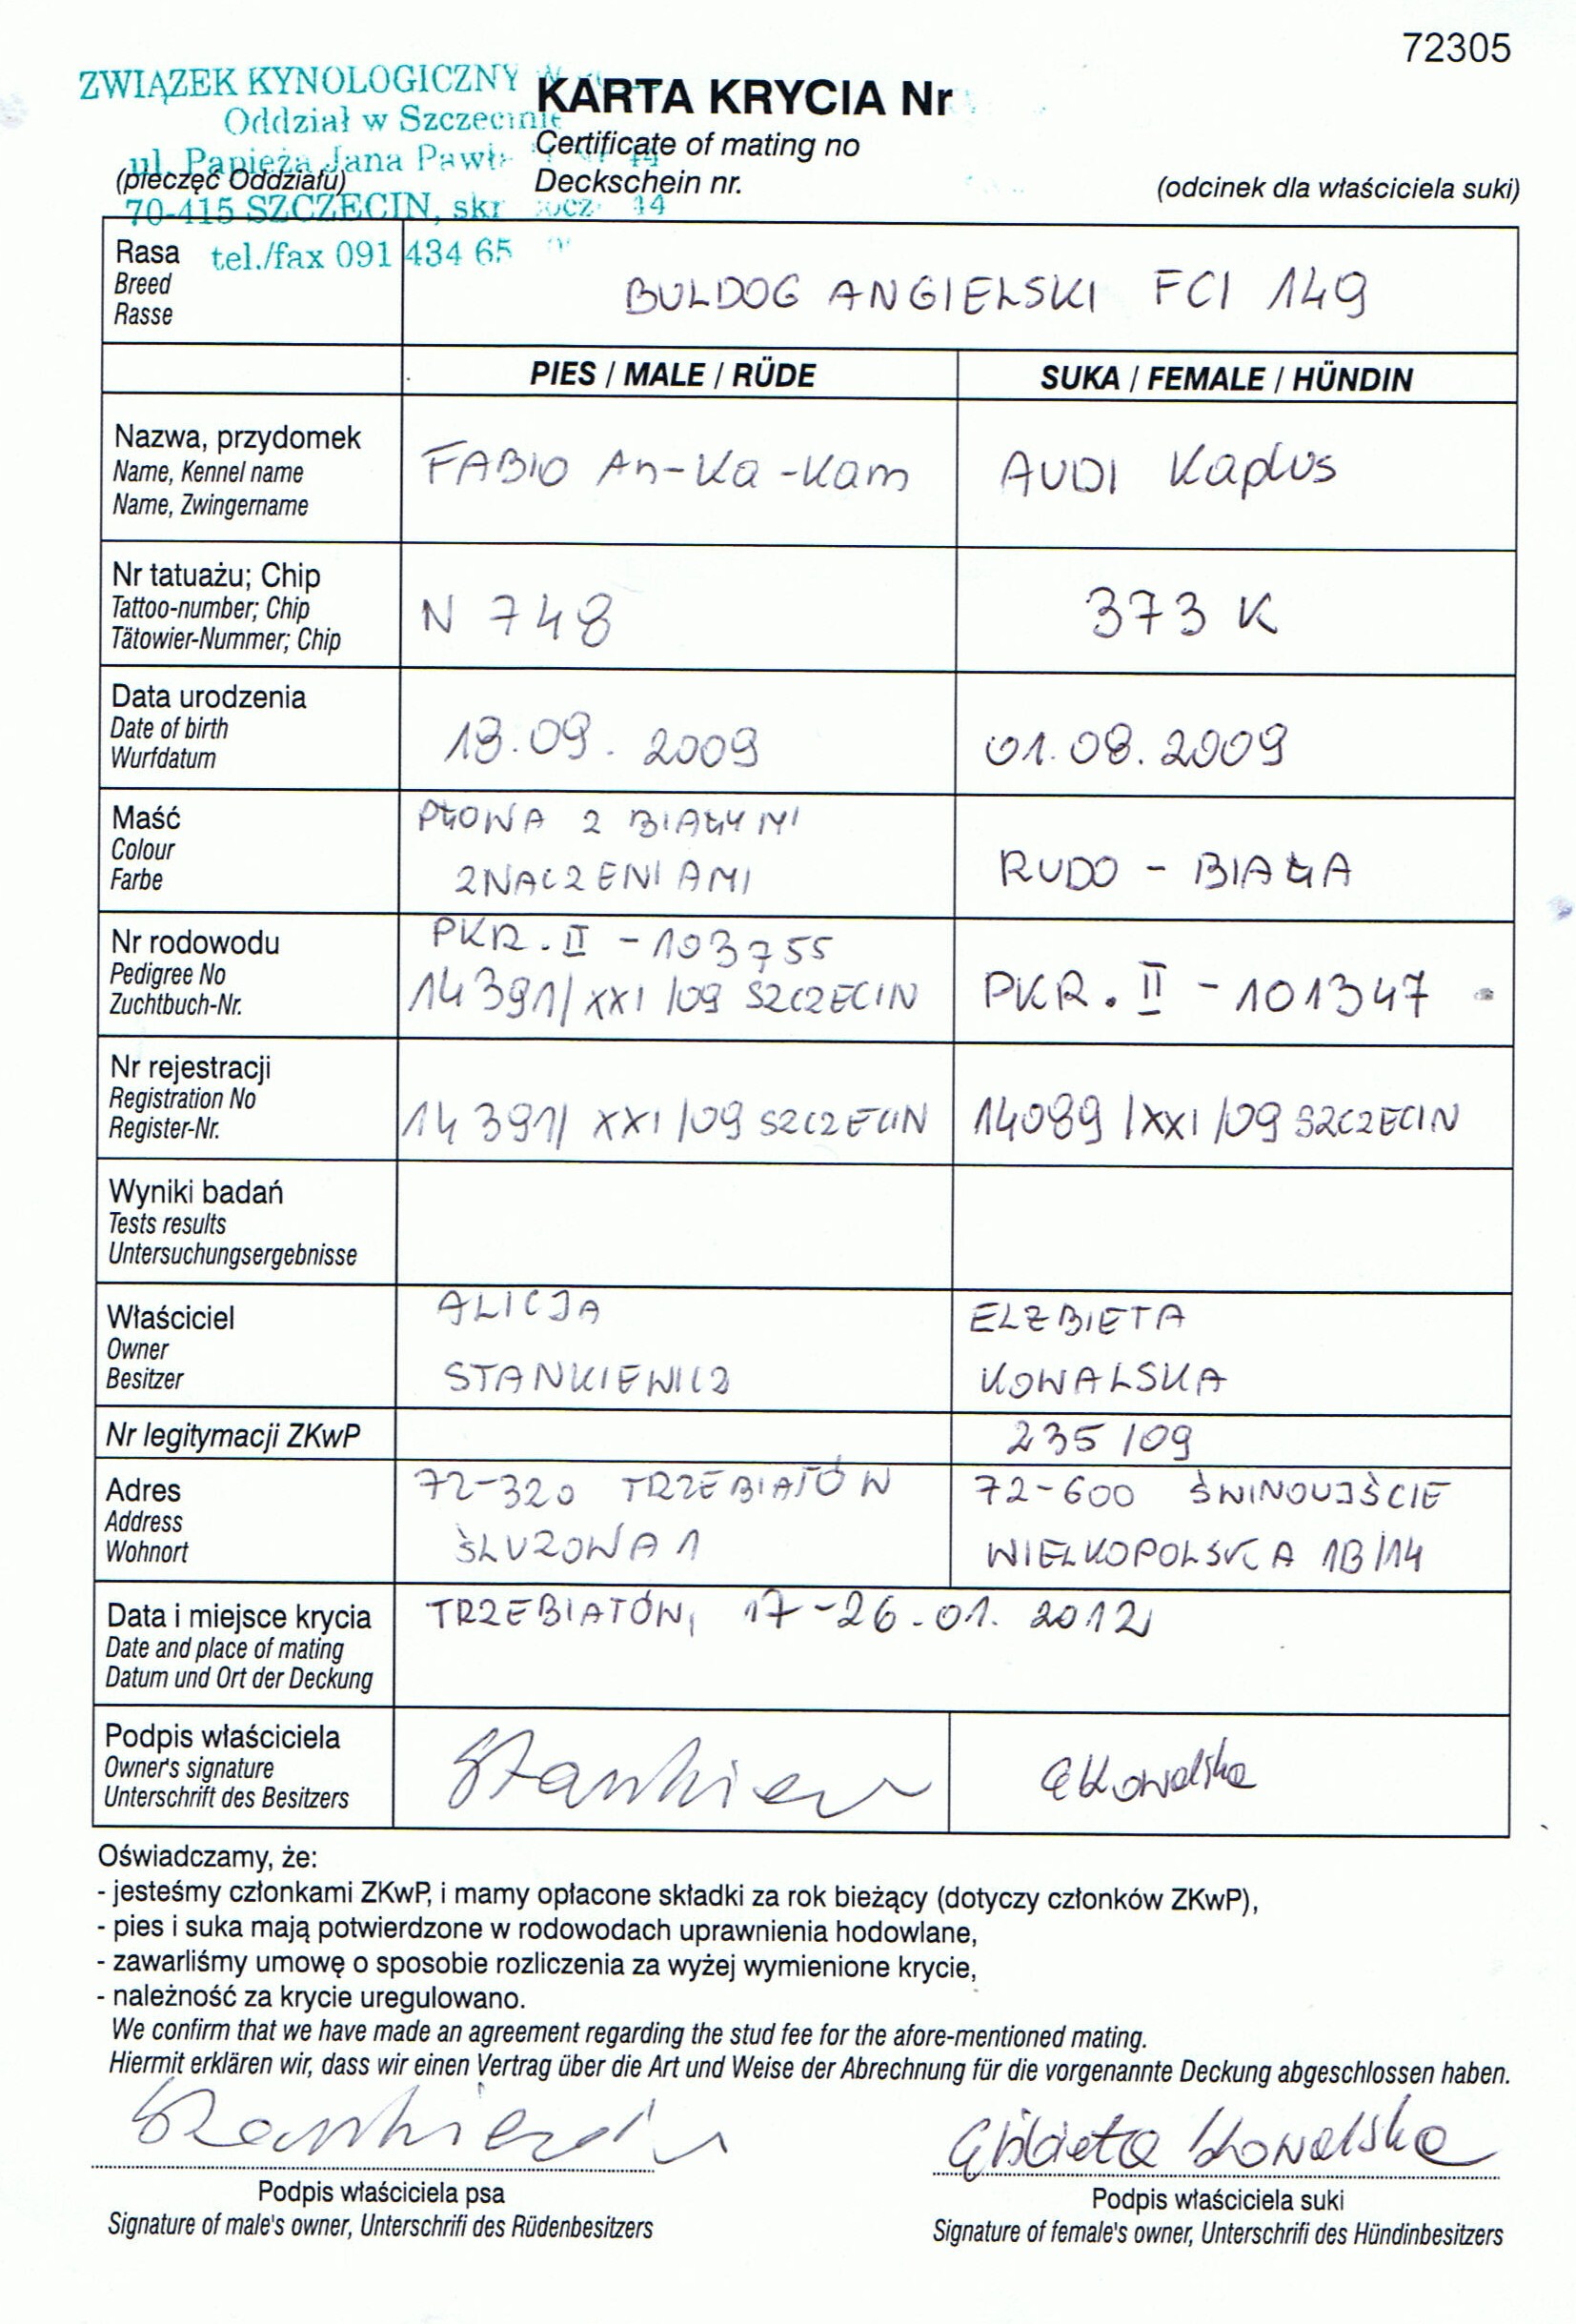 72305
ZWIĄZEK KYNOLOGICZNY W
KARTA KRYCIA Nr
Oddział w Szczecinie
Certificate of mating no
ul. Papieża Jana Pawła
(pieczęć Oddziału)
Deckschein nr.
(odcinek dla właściciela suki)
70-415 SZCZECIN, skr. pocz. 44
tel./fax 091 434 65
Rasa
Breed
Rasse
BULDOG ANGIELSKI FCI 149
PIES / MALE / RÜDE
SUKA / FEMALE / HÜNDIN
Nazwa, przydomek
Name, Kennel name
Name, Zwingername
FABIO An-Ka-Kam
AUDI Kaplus
Nr tatuażu; Chip
Tattoo-number; Chip
Tätowier-Nummer; Chip
N 748
373 K
Data urodzenia
Date of birth
Wurfdatum
.09. 2009
01.08.2009
Maść
Colour
Farbe
PŁOWA Z BIAŁYMI
ZNACZENIAMI
RUDO - BIAŁA
Nr rodowodu
Pedigree No
Zuchtbuch-Nr.
PKR. II - 103755
14391/XXI/09 SZCZECIN
PKR. II - 101347
Nr rejestracji
Registration No
Register-Nr.
14391/XXI/09 SZCZECIN
14089/XXI/09 SZCZECIN
Wyniki badań
Tests results
Untersuchungsergebnisse
Właściciel
Owner
Besitzer
ALICJA
STANKIEWICZ
ELZBIETA
KOWALSKA
Nr legitymacji ZKwP
235/09
Adres
Address
Wohnort
72-320 TRZEBIATÓW
ŚLUZOWA 1
72-600 ŚWINOUJŚCIE
WIELKOPOLSKA 1B/14
Data i miejsce krycia
Date and place of mating
Datum und Ort der Deckung
TRZEBIATÓW, 17-26.01. 2012
Podpis właściciela
Owner's signature
Unterschrift des Besitzers
Stankiew
EKowalska
Oświadczamy, że:
- jesteśmy członkami ZKwP, i mamy opłacone składki za rok bieżący (dotyczy członków ZKwP),
- pies i suka mają potwierdzone w rodowodach uprawnienia hodowlane,
- zawarliśmy umowę o sposobie rozliczenia za wyżej wymienione krycie,
- należność za krycie uregulowano.
We confirm that we have made an agreement regarding the stud fee for the afore-mentioned mating.
Hiermit erklären wir, dass wir einen Vertrag über die Art und Weise der Abrechnung für die vorgenannte Deckung abgeschlossen haben.
Elżbieta Kowalska
Podpis właściciela psa
Signature of male's owner, Unterschrifi des Rüdenbesitzers
Podpis właściciela suki
Signature of female's owner, Unterschrifi des Hündinbesitzers